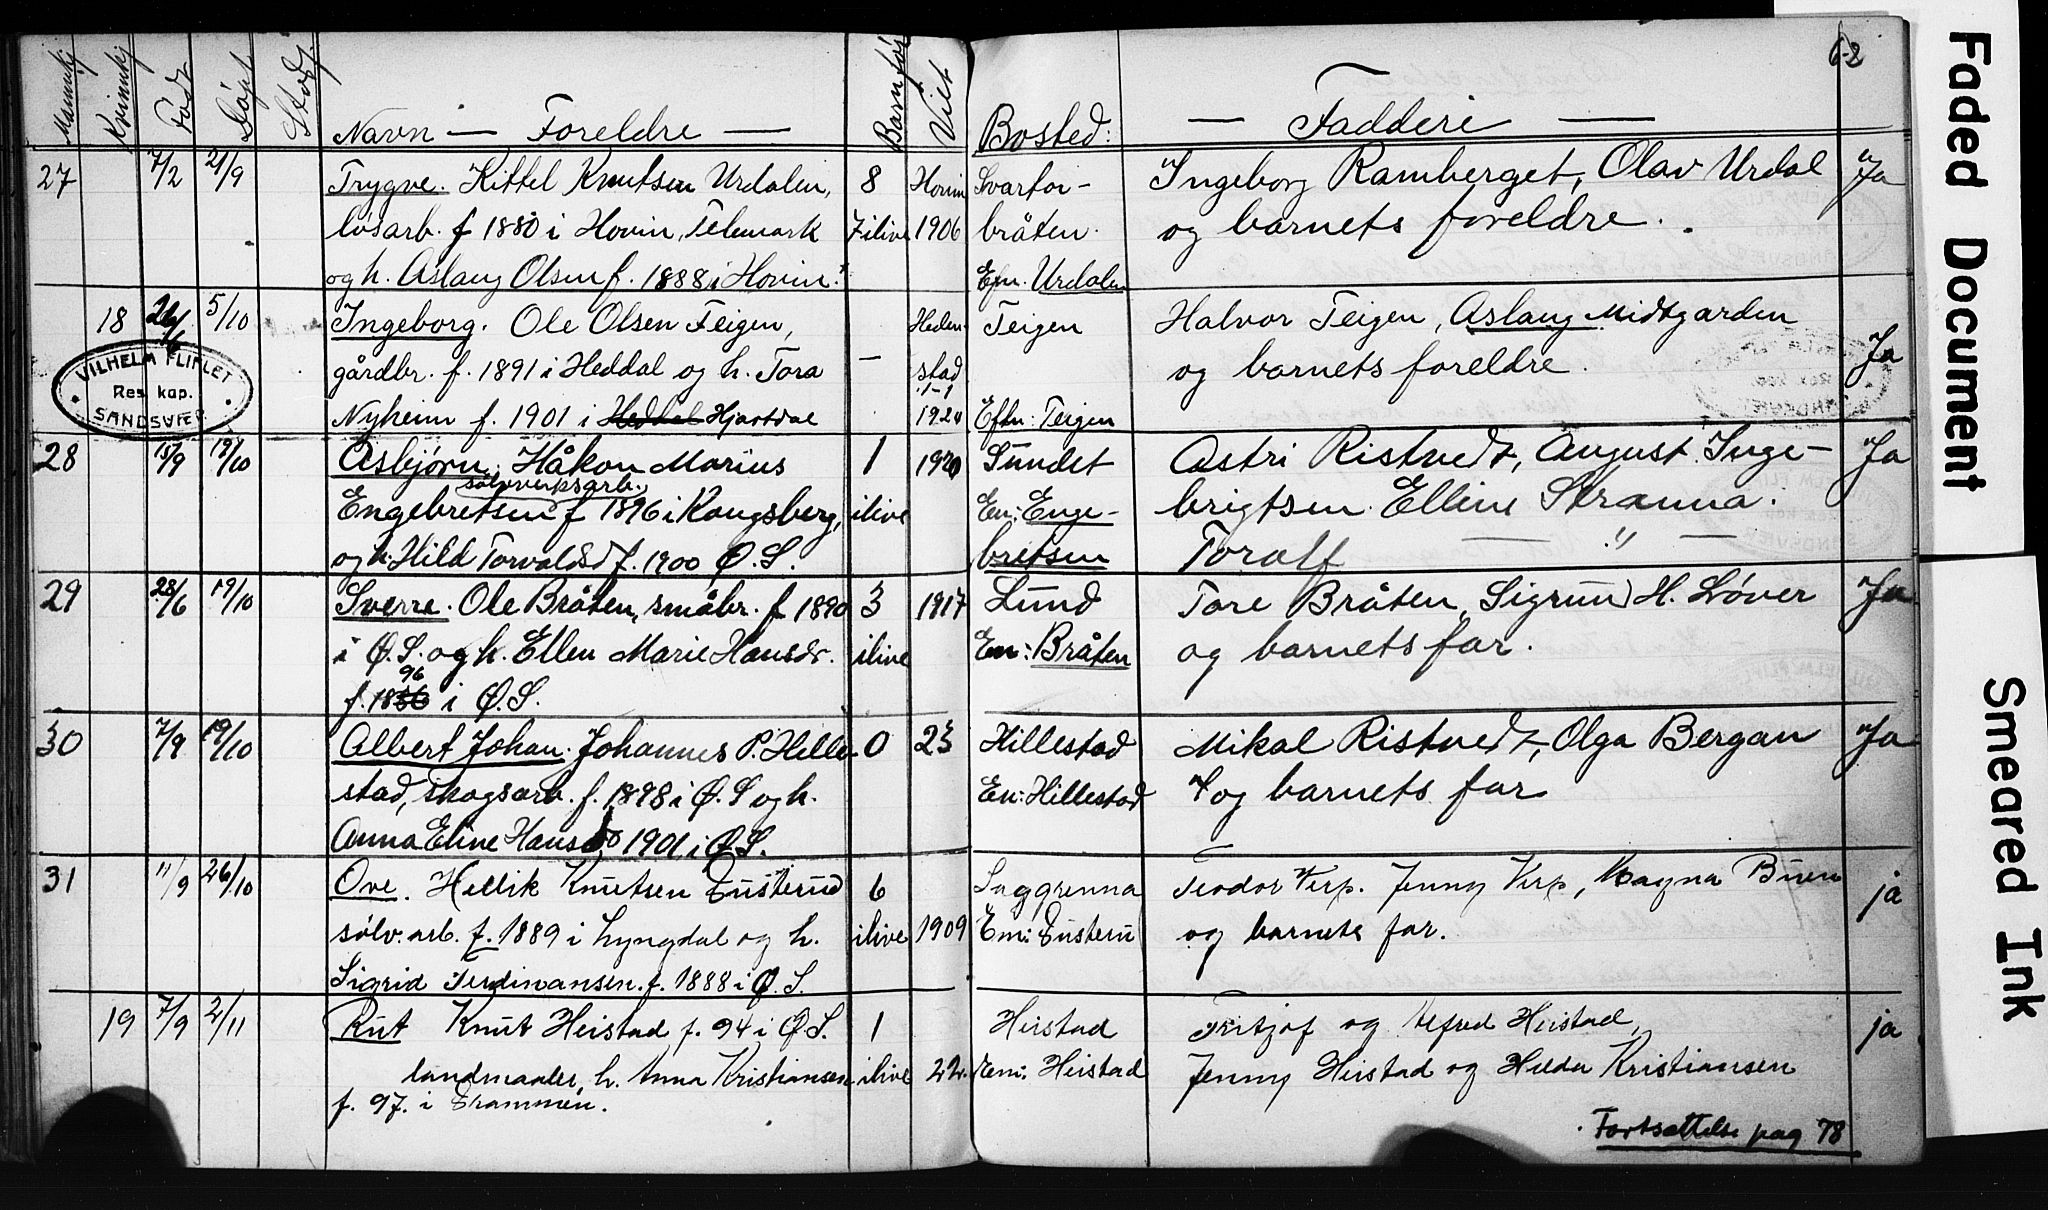 62
Mannkj Kvinnkj Født Døpt Sted Navn — Foreldre — Barn før Vilt Bosted: — Faddere —
27 7/2 21/9 Trygve. Kittel Knutsen Urdalen, 8 Hovin Svartor- Ingeborg Ramberget, Olav Urdal Ja
løsarb. f 1880 i Hovin, Telemark 7 ilive 1906 bråten. og barnets foreldre.
og h. Aslaug Olsen f. 1888 i Hovin. Efn. Urdalen
18 5/10 Ingeborg. Ole Olsen Teigen, Heden- Teigen Halvor Teigen, Aslaug Midtgarden Ja
gårdbr. f. 1891 i Heddal og h. Tora — stad og barnets foreldre.
Nyheim f. 1901 i Heddal Hjartdal 1920 Eftn: Teigen
VILHELM FLIFLET
Res. kap.
SANDSVÆR
28 15/9 19/10 Asbjørn. Håkon Marius 1 1920 Sundet Astri Ristvedt, August Inge- Ja
sølvverksarb.
Engebretsen f 1896 i Kongsberg, ilive En: Enge- brigtsen Elline Stranna.
og h. Hild Torvaldsd f. 1900 Ø. S. bretsen Toralf — " —
29 28/6 19/10 Sverre. Ole Bråten, småbr. f 1890 3 1917 Lund Tore Bråten, Sigrun H. Løver Ja
i Ø. S. og h. Ellen Marie Hansdr. ilive En: Bråten og barnets far.
96
f. 1856 i Ø. S.
30 7/9 19/10 Albert Johan. Johannes P. Hille- 0 23 Hillestad Mikal Ristvedt, Olga Bergan Ja
stad, skogsarb. f. 1898 i Ø. S og h. En: Hillestad og barnets far
Anna Eline Hansd 1901 i Ø. S.
31 11/9 26/10 Ove. Hellik Knutsen Tusterud 6 Saggrenna Teodor Verp. Jenny Verp, Magna Buen ja
sølv. arb. f. 1889 i Lyngdal og h. ilive 1909 Em: Tusteru og barnets far.
Sigrid Ferdinansen. f. 1888 i Ø. S.
19 7/9 2/11 Rut Knut Heistad f. 94 i Ø S. 1 Heistad Fritjof og Alfred Heistad, ja
landmaaler, h. Anna Kristiansen ilive 22. Em: Heistad Jenny Heistad og Hilda Kristiansen
f. 97. i Drammen.
Fortsættelse pag 78
Faded Document
Smeared Ink